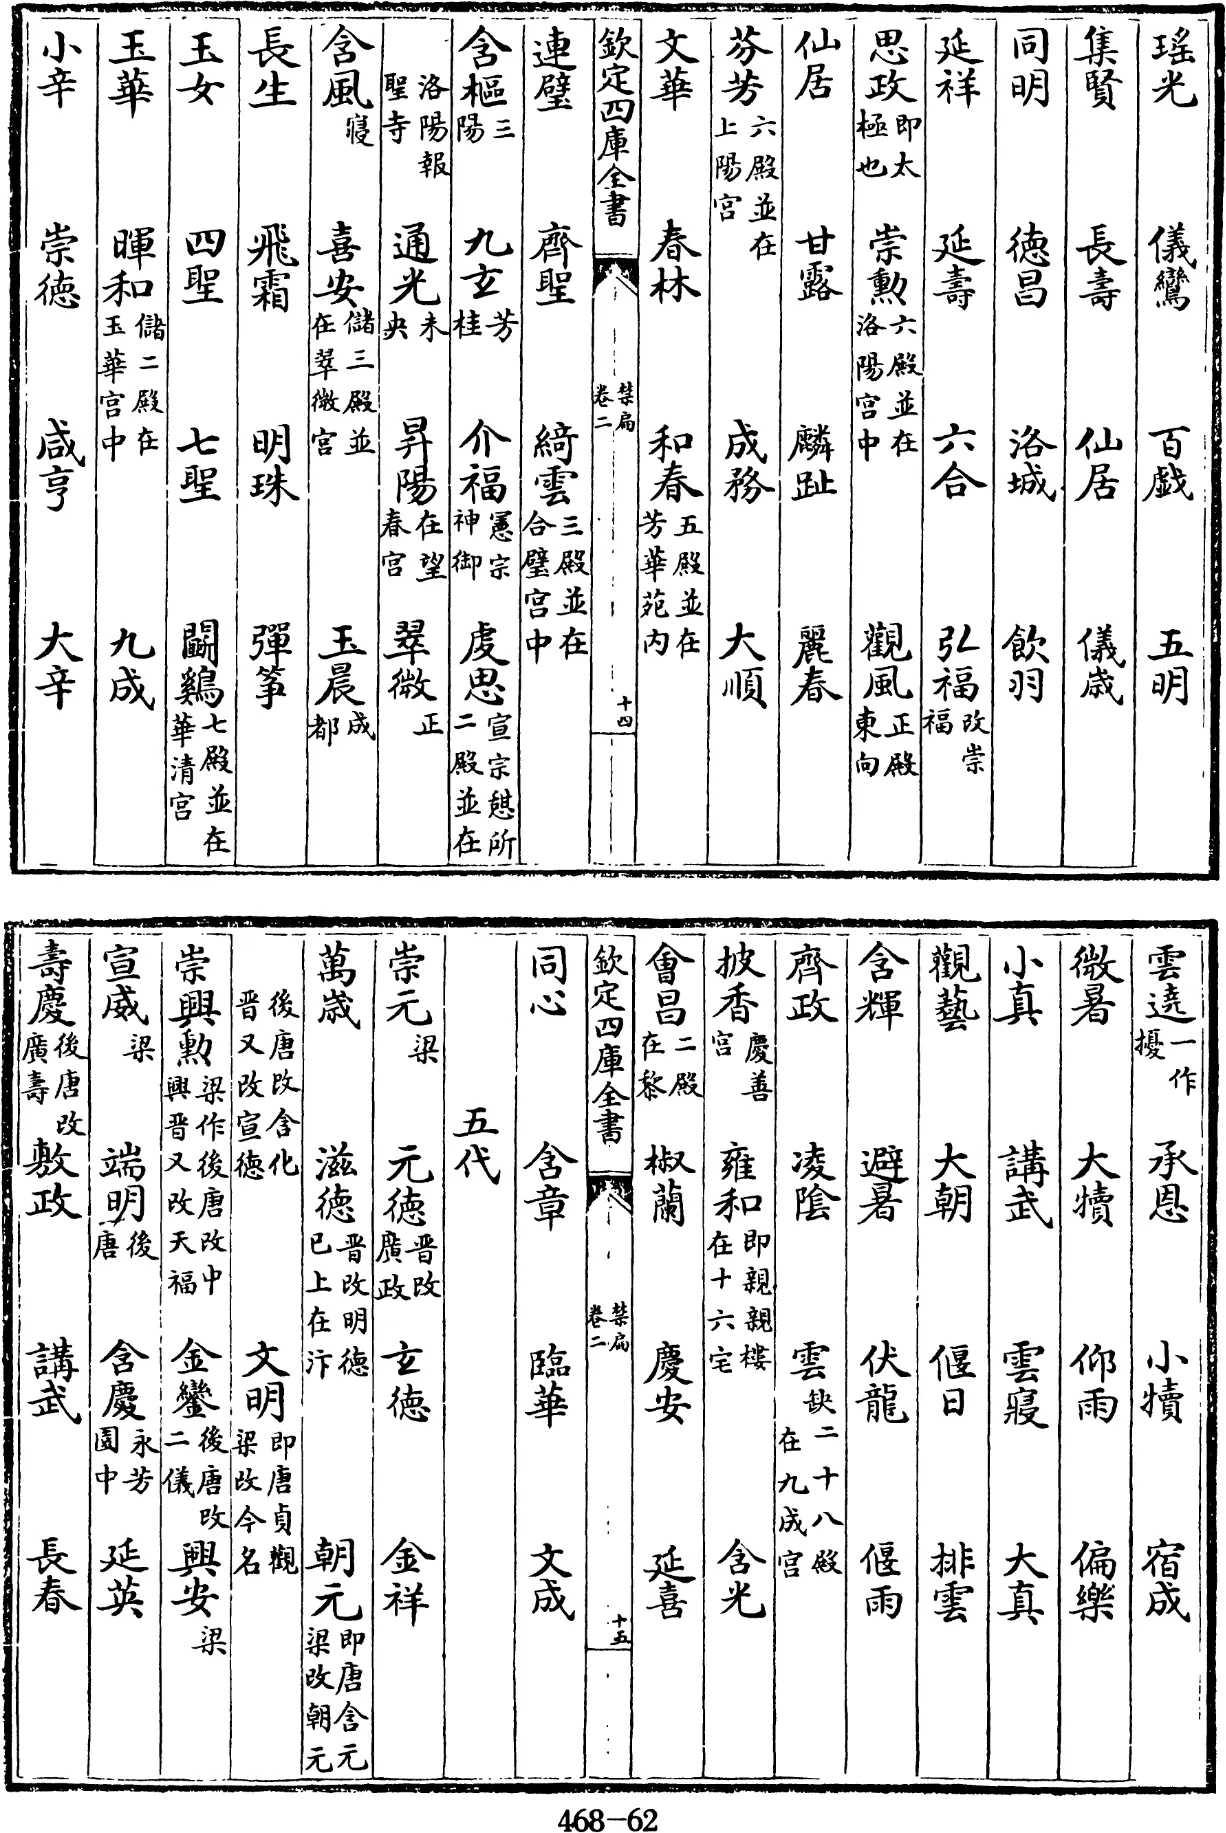 瑤光 儀鸞 百戲 五明
集賢 長壽 仙居 儀歳
同明 德昌 洛城 飲羽
延祥 延壽 六合 弘福改崇福
思政即太極也 崇勲六殿並在洛陽宮中 觀風正殿東向
仙居 甘露 麟趾 麗春
芬芳六殿並在上陽宮 成務 大順
文華 春林 和春五殿並在芳華苑内
欽定四庫全書 禁扁卷二 十四
連璧 齊聖 綺雲三殿並在合璧宮中
含樞三陽 九玄芳桂 介福憲宗神御 虔思宣宗憇所二殿並在
洛陽報聖寺 通光未央 昇陽在望春宮 翠微正
含風寢 喜安儲三殿並在翠微宮 玉晨成都
長生 飛霜 明珠 彈筝
玉女 四聖 七聖 鬭鷄七殿並在華清宮
玉華 暉和儲二殿在玉華宮中 九成
小辛 崇德 咸亨 大辛
雲遶一作擾 承恩 小犢 宿成
微暑 大犢 仰雨 偏樂
小真 講武 雲寢 大真
觀藝 大朝 偃日 排雲
含輝 避暑 伏龍 偃雨
齊政 凌陰 雲缺二十八殿在九成宮
披香慶善宮 雍和即親親樓在十六宅 含光
會昌二殿在黎 椒蘭 慶安 延喜
欽定四庫全書 禁扁卷二 十五
同心 含章 臨華 文成
五代
崇元梁 元德晋改廣政 玄德 金祥
萬歳 滋德晋改明德已上在汴 朝元即唐含元梁改朝元
後唐改含化晋又改宣德 文明即唐貞觀梁改今名
崇興勲梁作後唐改中興晋又改天福 金鑾後唐改二儀 興安梁
宣威梁 端明後唐 含慶永芳園中 延英
壽慶後唐改廣壽 敷政 講武 長春
468-62